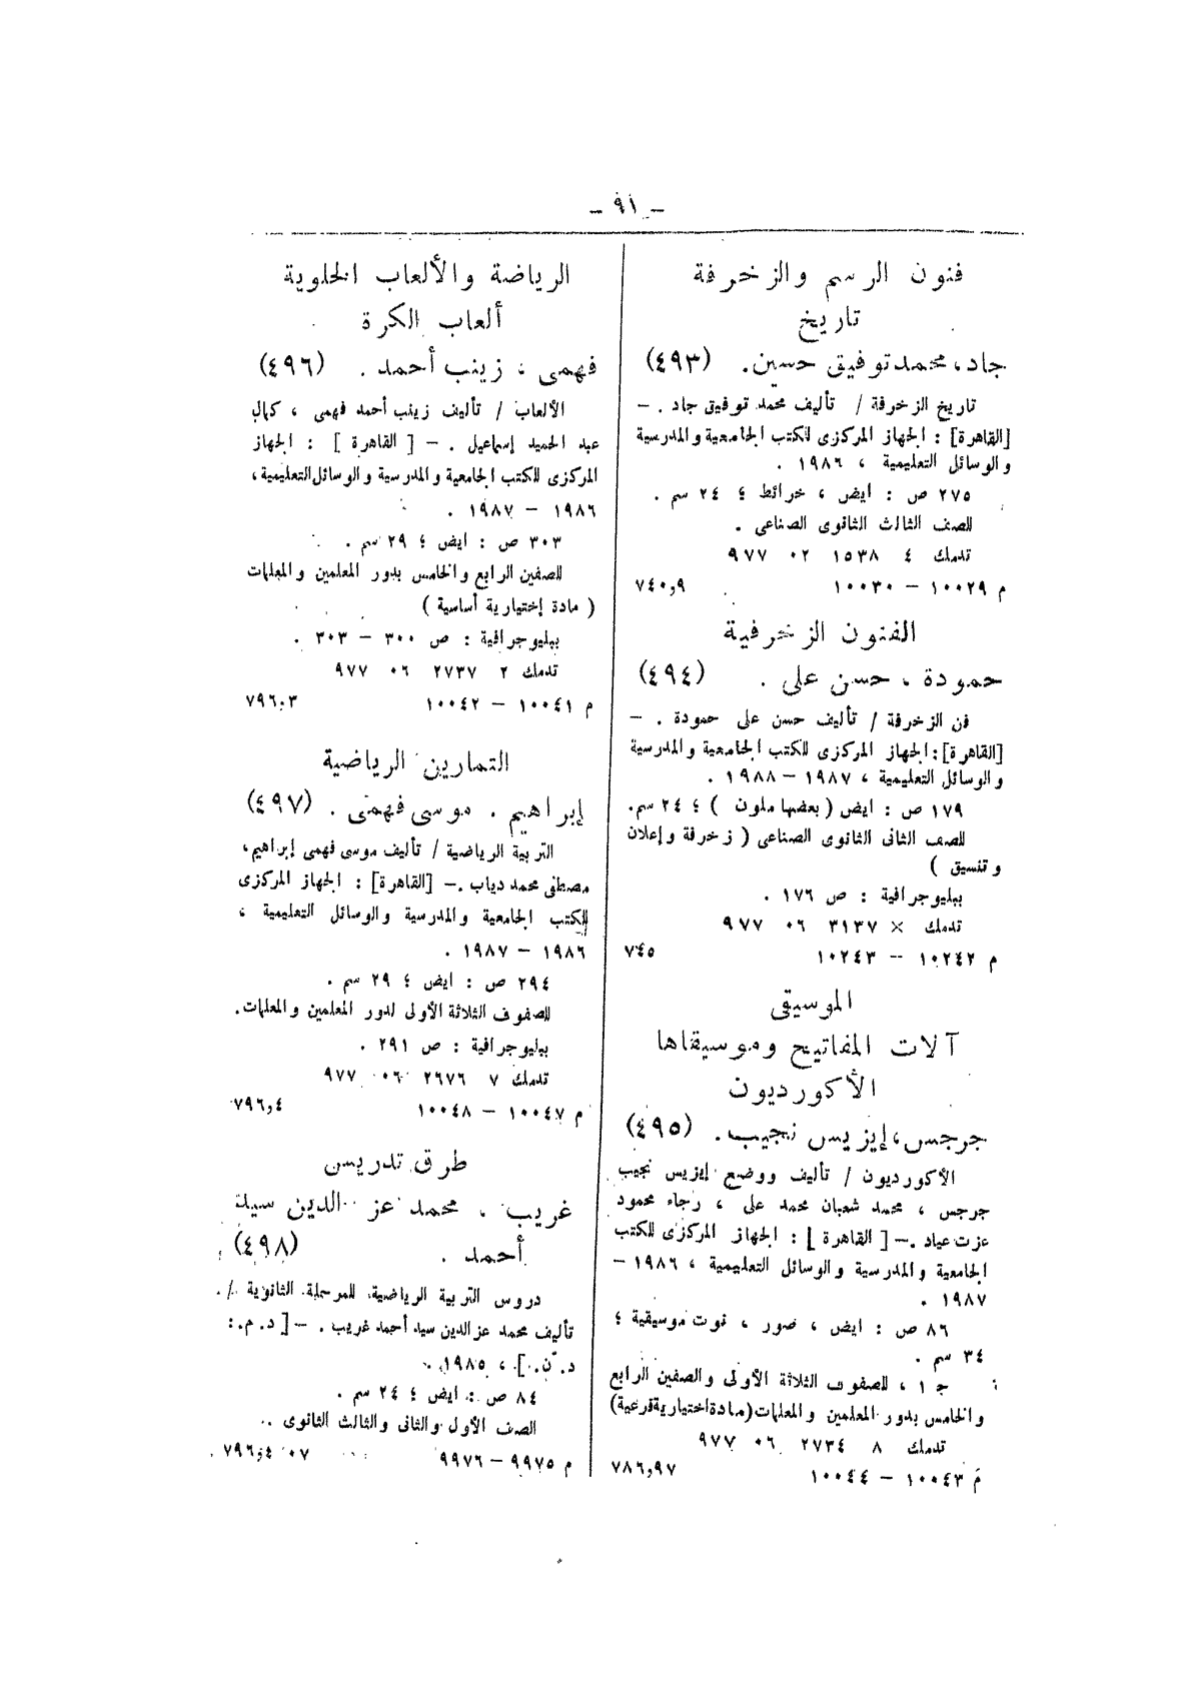 – ٩١ –
فنون الرسم والزخرفة
تاريخ
جاد، محمد توفيق حسين. (٤٩٣)
تاريخ الزخرفة / تأليف محمد توفيق جاد . –
[القاهرة] : الجهاز المركزى للكتب الجامعية والمدرسية
والوسائل التعليمية ، ١٩٨٦ .
٢٧٥ ص : ايض ، خرائط ؛ ٢٤ سم .
للصف الثالث الثانوى الصناعى .
تدمك ٤ ١٥٣٨ ٠٢ ٩٧٧
م ١٠٠٢٩ – ١٠٠٣٠ ٧٤٠,٩
الفنون الزخرفية
حمودة ، حسن على . (٤٩٤)
فن الزخرفة / تأليف حسن على حمودة . –
[القاهرة] : الجهاز المركزى للكتب الجامعية والمدرسية
والوسائل التعليمية ، ١٩٨٧ – ١٩٨٨ .
١٧٩ ص : ايض ( بعضها ملون ) ؛ ٢٤ سم.
للصف الثانى الثانوى الصناعى ( زخرفة وإعلان
وتنسيق )
ببليوجرافية : ص ١٧٦ .
تدمك × ٣١٣٧ ٠٦ ٩٧٧
م ١٠٢٤٢ – ١٠٢٤٣ ٧٤٥
الموسيقى
آلات المفاتيح وموسيقاها
الأكورديون
جرجس، إيزيس نجيب. (٤٩٥)
الأكورديون / تأليف ووضع إيزيس نجيب
جرجس ، محمد شعبان محمد على ، رجاء محمود
عزت عياد .– [ القاهرة ] : الجهاز المركزى للكتب
الجامعية والمدرسية والوسائل التعليمية ، ١٩٨٦ –
١٩٨٧ .
٨٦ ص : ايض ، صور ، نوت موسيقية ؛
٣٤ سم .
ج ١ ، للصفوف الثلاثة الأولى والصفين الرابع
والخامس بدور المعلمين والمعلمات (مادة اختيارية فرعية)
تدمك ٨ ٢٧٣٤ ٠٦ ٩٧٧
م ١٠٠٤٣ – ١٠٠٤٤ ٧٨٦,٩٧
الرياضة والألعاب الخلوية
ألعاب الكرة
فهمى ، زينب أحمد . (٤٩٦)
الألعاب / تأليف زينب أحمد فهمى ، كمال
عبد الحميد إسماعيل . – [ القاهرة ] : الجهاز
المركزى للكتب الجامعية والمدرسية والوسائل التعليمية ،
١٩٨٦ – ١٩٨٧ .
٣٠٣ ص : ايض ؛ ٢٩ سم .
للصفين الرابع والخامس بدور المعلمين والمعلمات
( مادة إختيارية أساسية )
ببليوجرافية : ص ٣٠٠ – ٣٠٣ .
تدمك ٢ ٢٧٣٧ ٠٦ ٩٧٧
م ١٠٠٤١ – ١٠٠٤٢ ٧٩٦,٣
التمارين الرياضية
إبراهيم . موسى فهمى . (٤٩٧)
التربية الرياضية / تأليف موسى فهمى إبراهيم ،
مصطفى محمد دياب .– [القاهرة] : الجهاز المركزى
للكتب الجامعية والمدرسية والوسائل التعليمية ،
١٩٨٦ – ١٩٨٧ .
٢٩٤ ص : ايض ؛ ٢٩ سم .
للصفوف الثلاثة الأولى لدور المعلمين والمعلمات.
ببليوجرافية : ص ٢٩١ .
تدمك ٧ ٢٦٧٦ ٠٦ ٩٧٧
م ١٠٠٤٧ – ١٠٠٤٨ ٧٩٦,٤
طرق تدريس
غريب . محمد عز الدين سيد
أحمد . (٤٩٨)
دروس التربية الرياضية للمرحلة الثانوية /
تأليف محمد عز الدين سيد أحمد غريب . – [ د.م. :
د.ن.] ، ١٩٨٥ .
٨٤ ص : ايض ؛ ٢٤ سم .
الصف الأول والثانى والثالث الثانوى .
م ٩٩٧٥ – ٩٩٧٦ ٧٩٦,٤٠٧